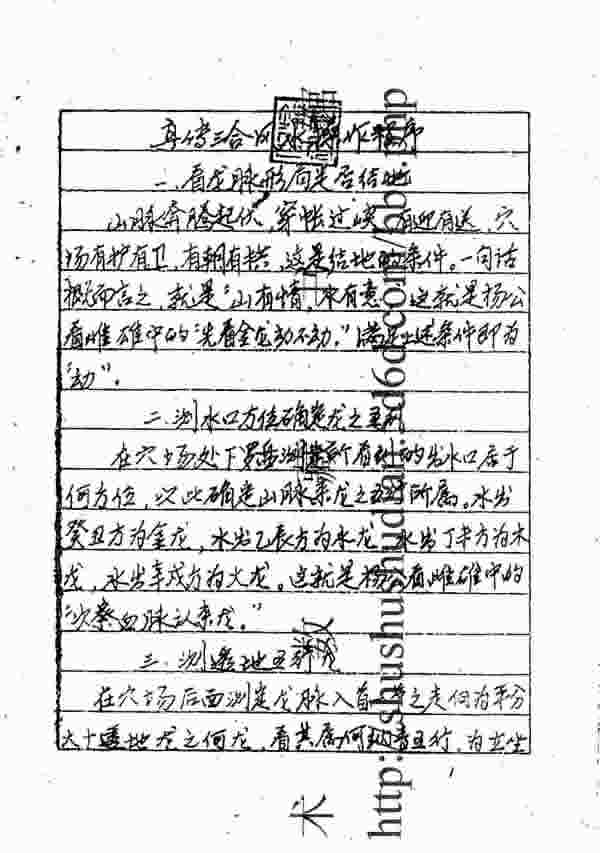 真传三合风水操作程序
一、看龙脉形局是否结地
山脉奔腾起伏，穿帐过峡，有迎有送，穴
场有护有卫，有朝有拱，这是结地的条件。一句话
概而言之，就是“山有情，水有意”，这就是杨公
看雌雄中的“先看金龙动不动。”满足上述条件即为
“动”。
二、测水口方位确定龙之五行
在穴场处下罗盘测 所有 出水口居于
何方位，以此确定山脉来龙之五行所属。水出
癸丑方为金龙，水出乙辰方为水龙，水出丁未方为木
龙，水出辛戌方为火龙。这就是杨公看雌雄中的
“次察血脉认来龙。”
三、测透地五行
在穴场后面测定龙脉入首 之走向为平分
六十透地龙之何龙，看其属何纳音五行，为立坐
1
http://shushushudian.d6d.com/